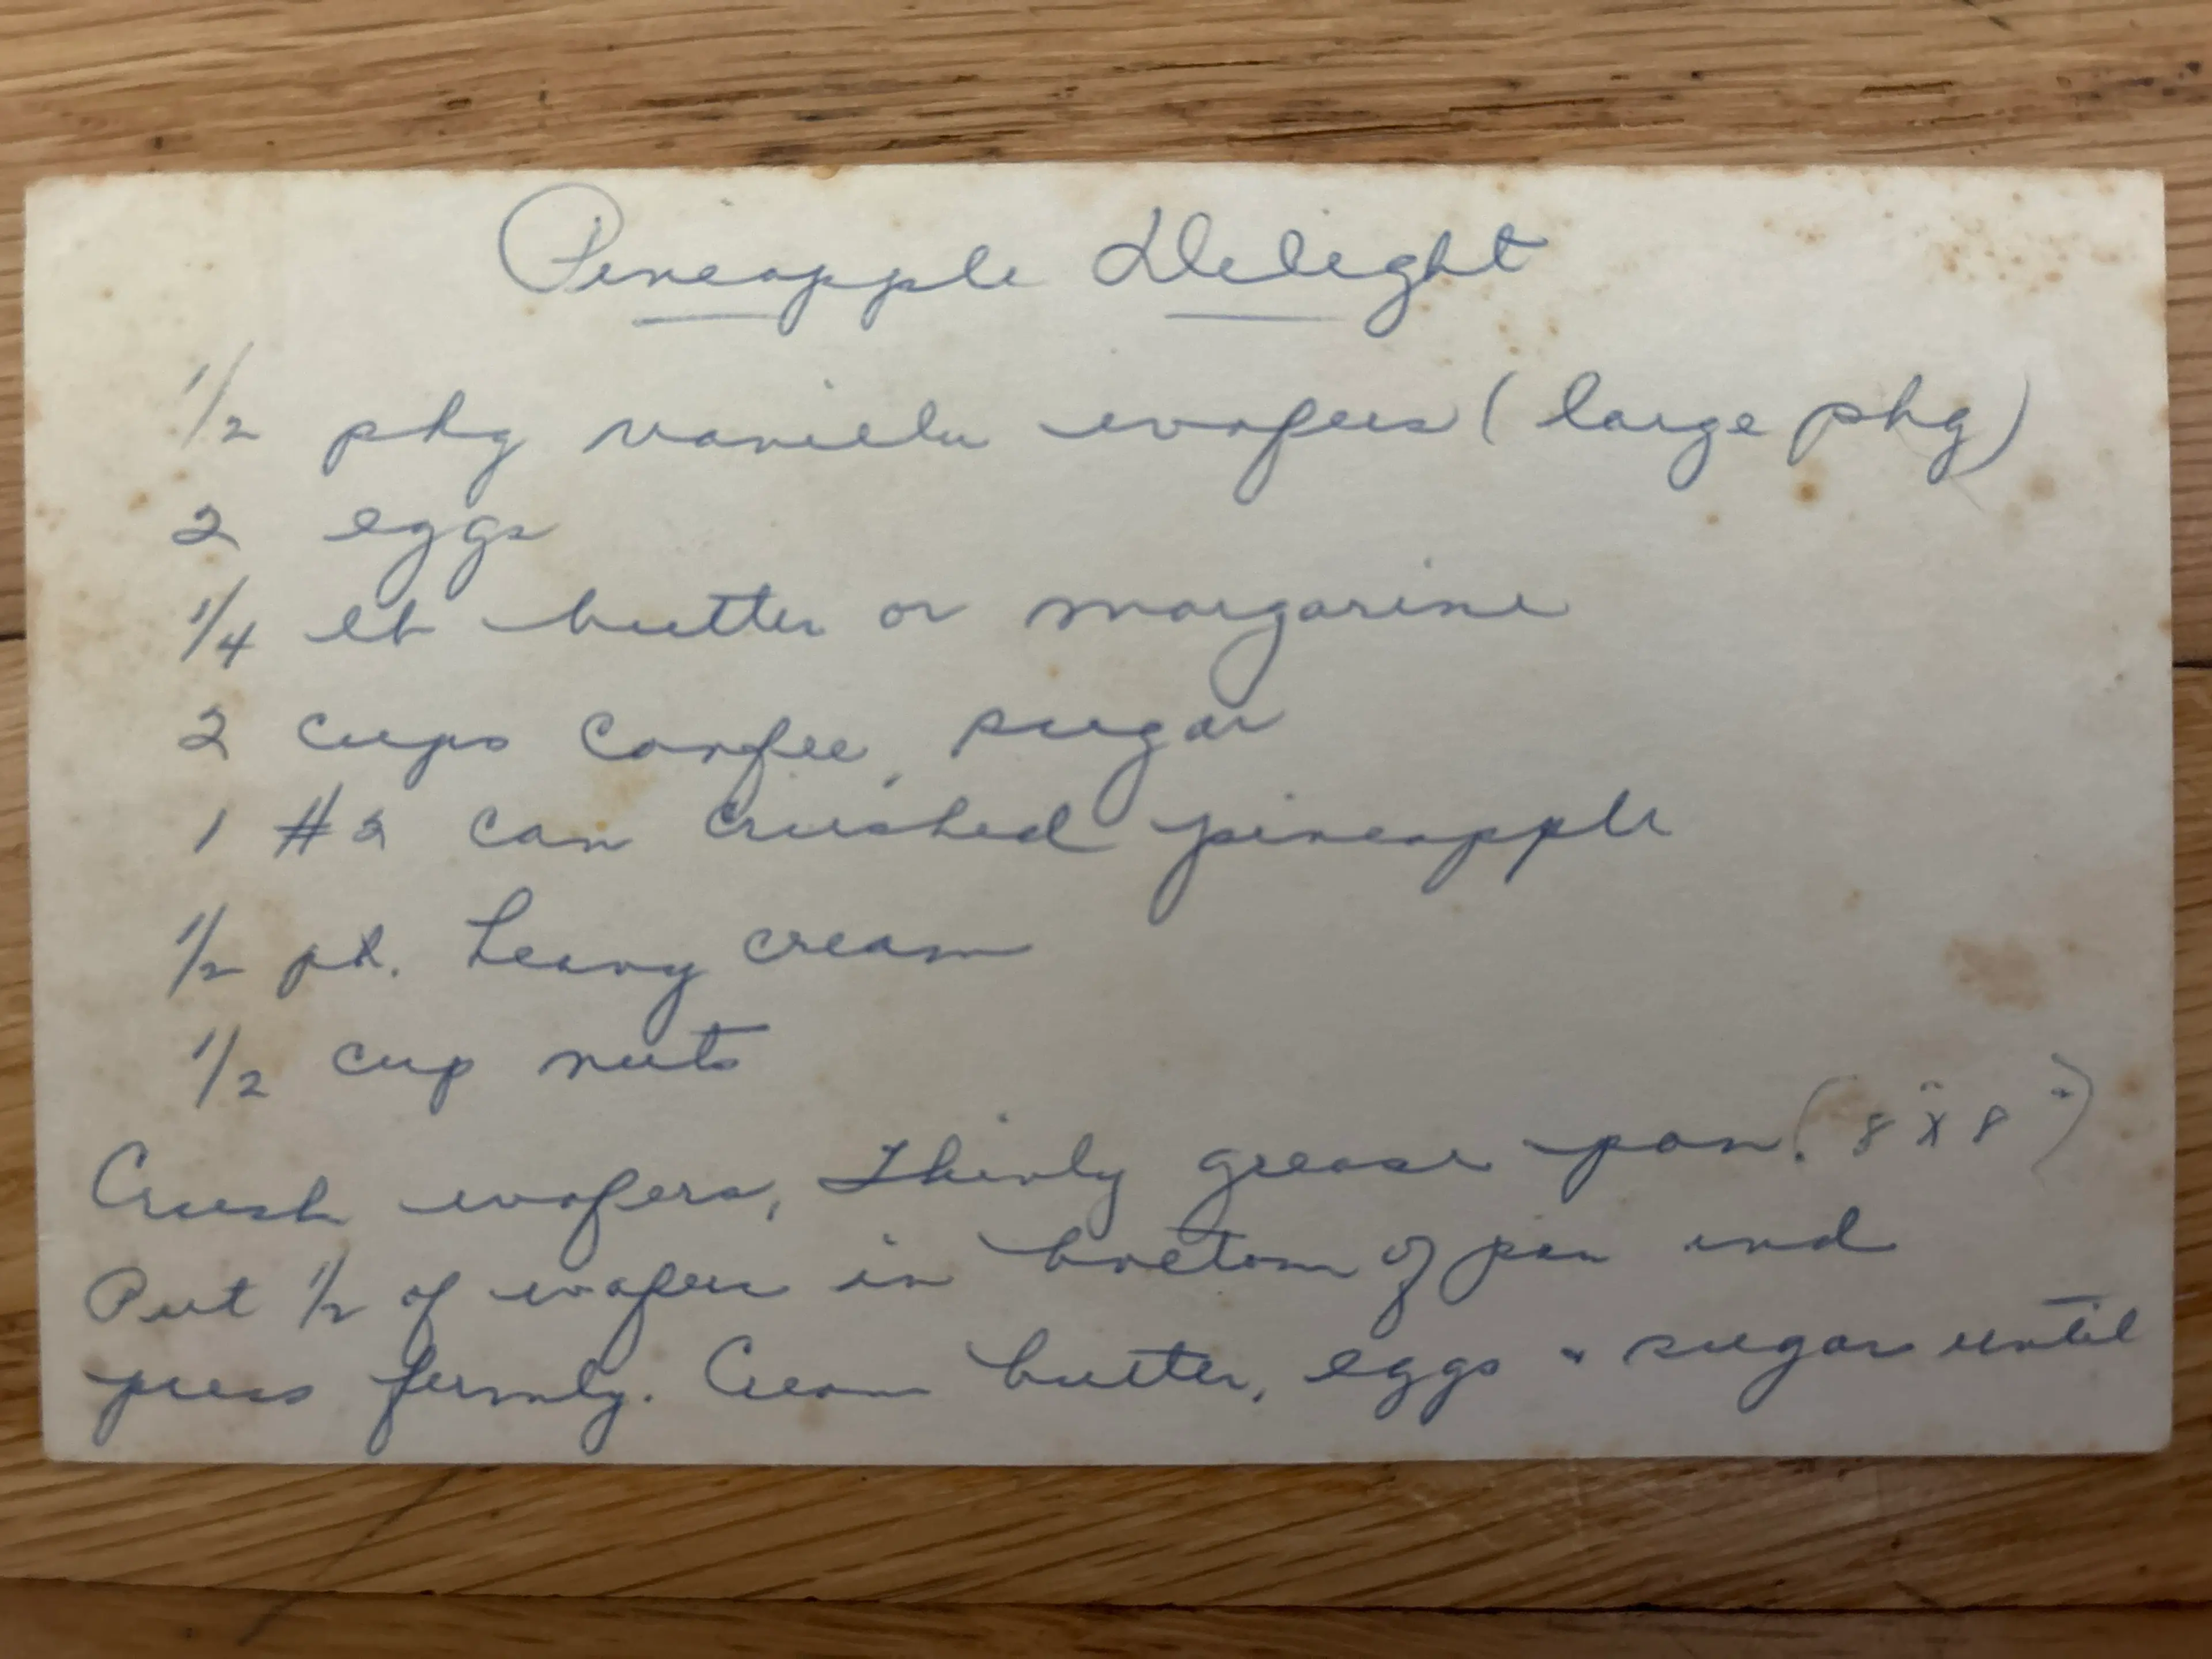 Pineapple Delight
1/2 pkg vanilla wafers (large pkg)
2 eggs
1/4 lb butter or margarine
2 cups confec. sugar
1 #2 can crushed pineapple
1/2 pt. heavy cream
1/2 cup nuts
Crush wafers, Thinly grease pan. (8"x8")
Put 1/2 of wafers in bottom of pan and
press firmly. Cream butter, eggs & sugar until